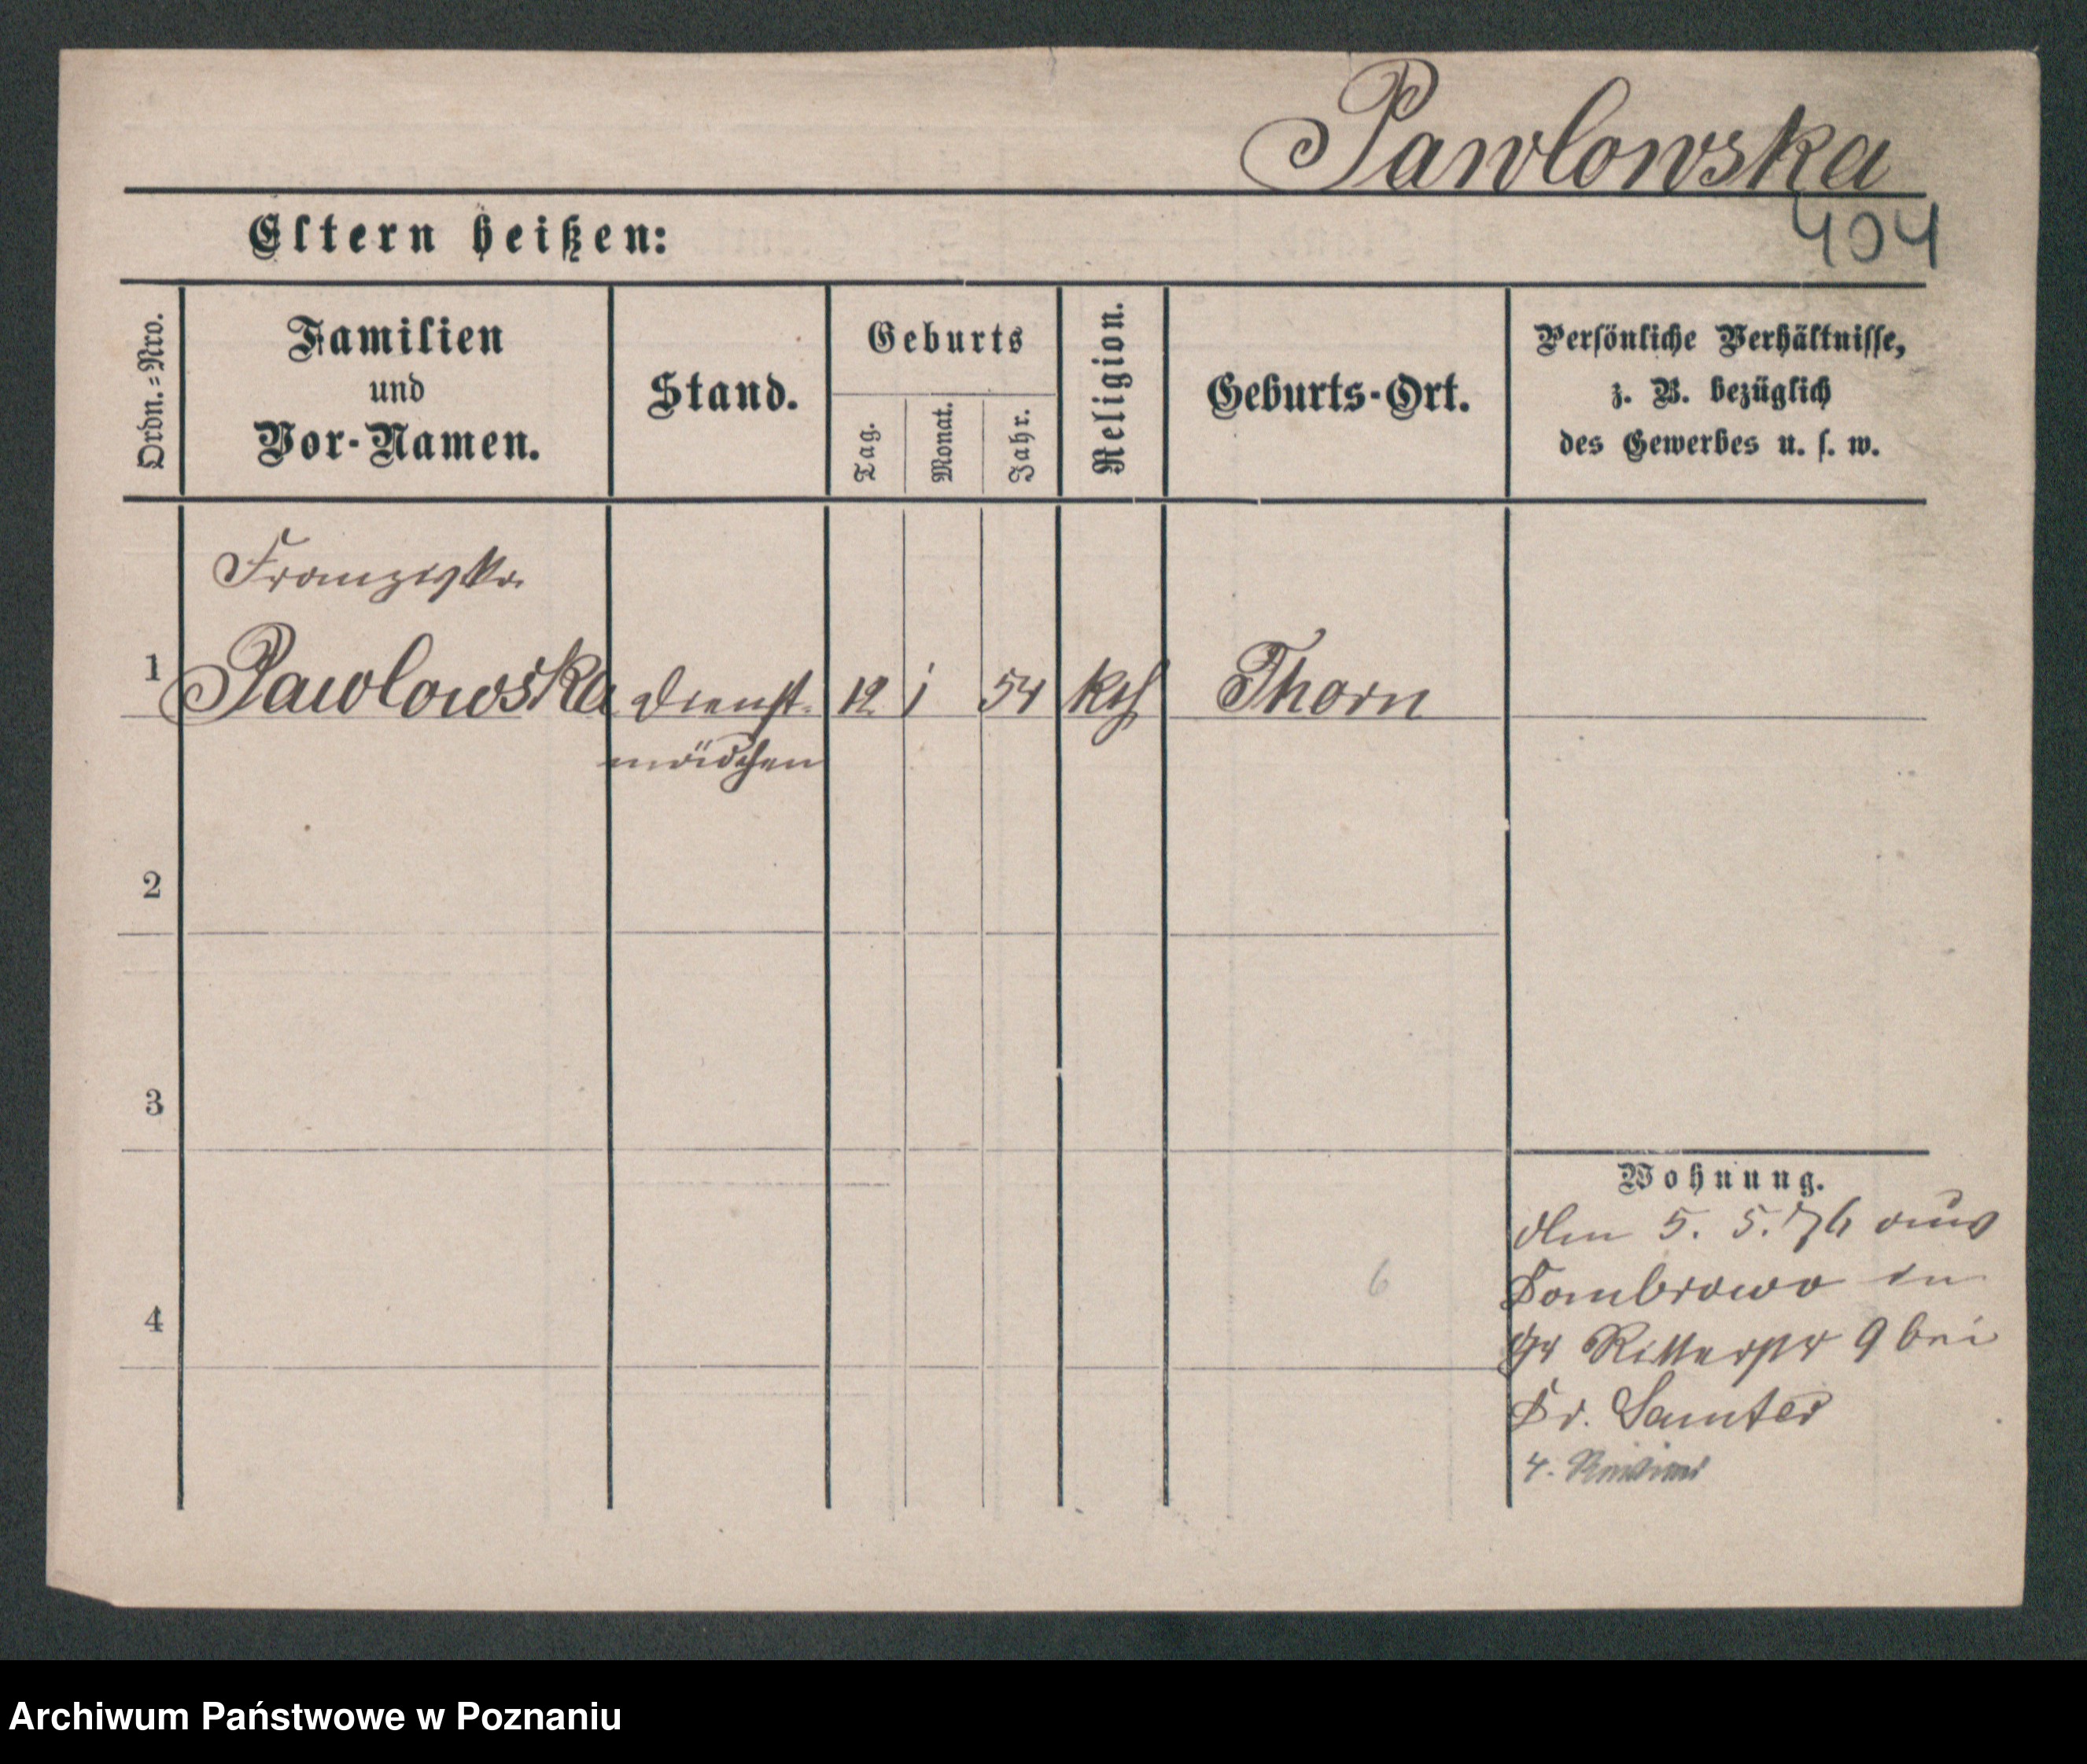 Pawlowska
404
Eltern heißen:
Ordn.=Nro.
Familien
und
Vor-Namen.
Stand.
Geburts
Tag.
Monat.
Jahr.
Religion.
Geburts-Ort.
Persönliche Verhältnisse,
z. B. bezüglich
des Gewerbes u. s. w.
Franziska
1 Pawlowska Dienst- 12 1 54 kth Thorn
mädchen
2
3
4
Wohnung.
den 5. 5. 76 aus
Dombrowo in
Gr Ritterstr 9 bei
Dr. Samter
4.
6
Archiwum Państwowe w Poznaniu